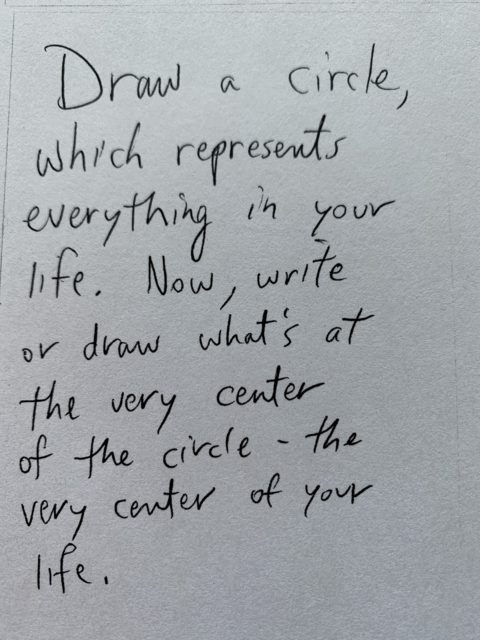 Draw a circle,
which represents
everything in your
life. Now, write
or draw what's at
the very center
of the circle - the
very center of your
life.